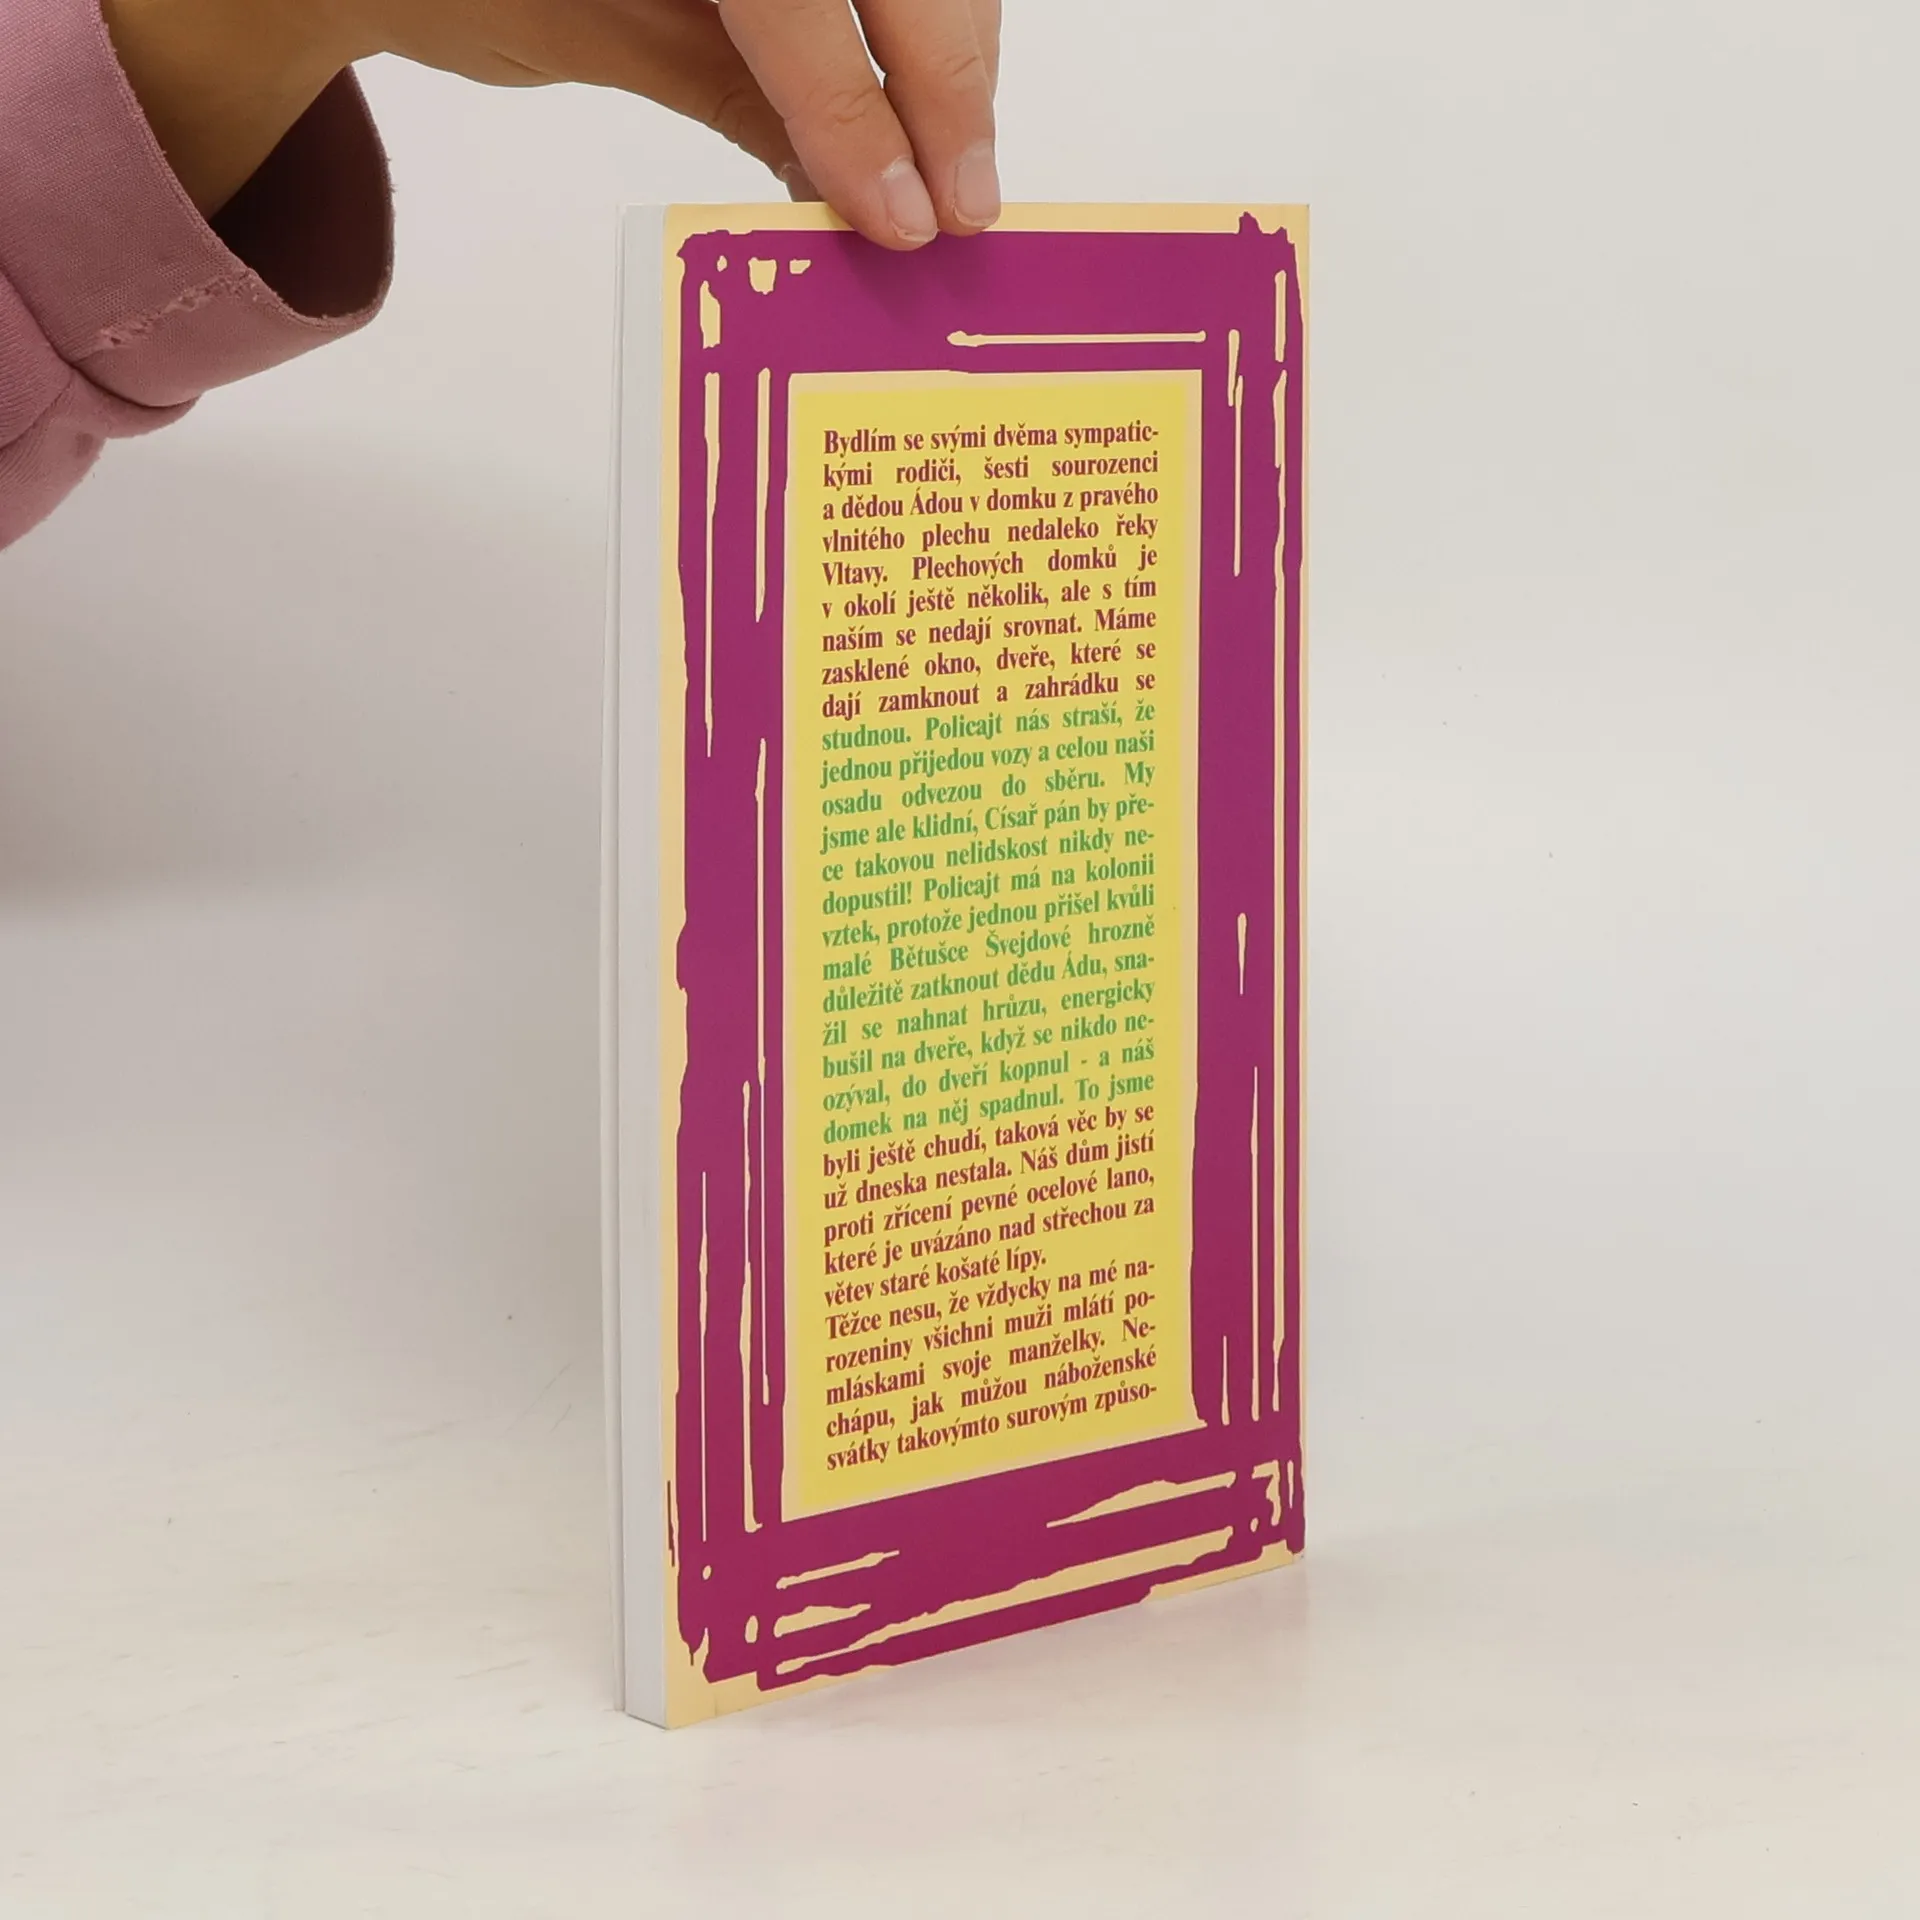 Bydlím se svými dvěma sympatic-
kými rodiči, šesti sourozenci
a dědou Ádou v domku z pravého
vlnitého plechu nedaleko řeky
Vltavy. Plechových domků je
v okolí ještě několik, ale s tím
naším se nedají srovnat. Máme
zasklené okno, dveře, které se
dají zamknout a zahrádku se
studnou. Policajt nás straší, že
jednou přijedou vozy a celou naši
osadu odvezou do sběru. My
jsme ale klidní, Císař pán by pře-
ce takovou nelidskost nikdy ne-
dopustil! Policajt má na kolonii
vztek, protože jednou přišel kvůli
malé Bětušce Švejdové hrozně
důležitě zatknout dědu Ádu, sna-
žil se nahnat hrůzu, energicky
bušil na dveře, když se nikdo ne-
ozýval, do dveří kopnul - a náš
domek na něj spadnul. To jsme
byli ještě chudí, taková věc by se
už dneska nestala. Náš dům jistí
proti zřícení pevné ocelové lano,
které je uvázáno nad střechou za
větev staré košaté lípy.
Těžce nesu, že vždycky na mé na-
rozeniny všichni muži mlátí po-
mláskami svoje manželky. Ne-
chápu, jak můžou náboženské
svátky takovýmto surovým způso-